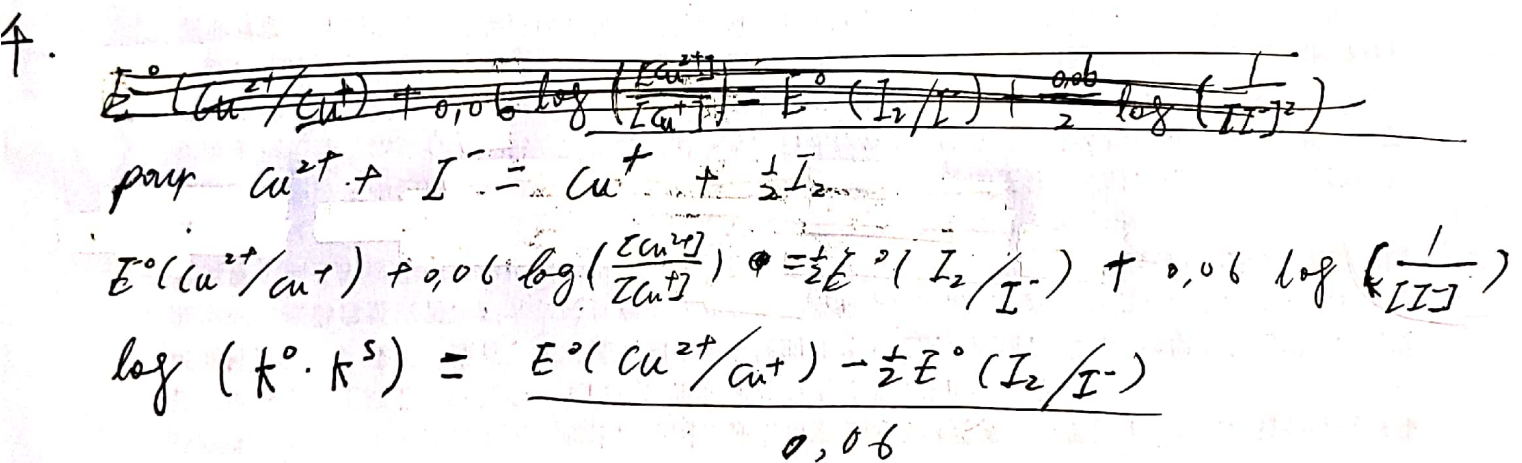 4.
E°(Cu²⁺/Cu⁺) + 0,06 log([Cu²⁺]/[Cu⁺]) = E°(I₂/I⁻) + 0,06/2 log(1/[I⁻]²)
pour Cu²⁺ + I⁻ = Cu⁺ + ½I₂
E°(Cu²⁺/Cu⁺) + 0,06 log([Cu²⁺]/[Cu⁺]) = ½E°(I₂/I⁻) + 0,06 log(1/[I⁻])
log(k°·k^s) = (E°(Cu²⁺/Cu⁺) - ½E°(I₂/I⁻))/0,06